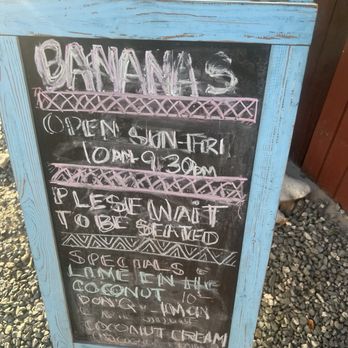 BANANAS
OPEN SUN-FRI
10AM-9.30PM
PLESE WAIT
TO BE SEATED
SPECIALS
LIME EN THE
COCONUT 10
DON Q
COCONUT CREAM